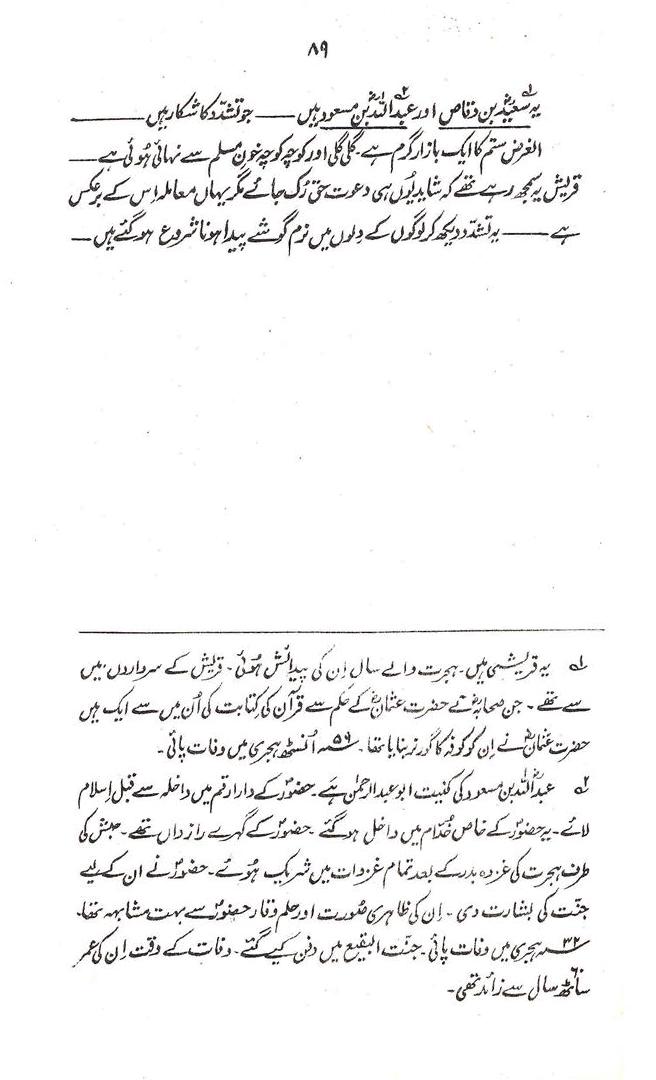 ۸۹
یہ سعیدؓ بن وقاص ۱؎ اور عبداللہؓ بن مسعود ۲؎ ہیں —— جو تشدّد کا شکار ہیں ——
الغرض ستم کا ایک بازار گرم ہے۔ گلی گلی اور کوچہ کوچہ خونِ مسلم سے نہائی ہُوئی ہے —
قریش یہ سمجھ رہے تھے کہ شاید یُوں ہی دعوت حق رُک جائے مگر یہاں معاملہ اِس کے برعکس
ہے —— یہ تشدّد دیکھ کر لوگوں کے دِلوں میں نرم گوشے پیدا ہونا شروع ہو گئے ہیں —
۱؎ یہ قریشی ہیں۔ ہجرت والے سال اِن کی پیدائش ہُوئی۔ قریش کے سرداروں میں
سے تھے۔ جن صحابہؓ نے حضرت عثمانؓ کے حکم سے قرآن کی کتابت کی اُن میں سے ایک ہیں
حضرت عثمانؓ نے اِن کو کوفہ کا گورنر بنایا تھا۔ ۵۹؁ اُنسٹھ ہجری میں وفات پائی۔
۲؎ عبداللہؓ بن مسعود کی کنیت ابو عبدالرحمٰن ہے۔ حضورؐ کے دارارقم میں داخلہ سے قبل اِسلام
لائے۔ یہ حضورؐ کے خاص خُدّام میں داخل ہو گئے۔ حضورؐ کے گہرے رازداں تھے۔ حبش کی
طرف ہجرت کی غزوہ بدر کے بعد تمام غزوات میں شریک ہُوئے۔ حضورؐ نے ان کے لیے
جنّت کی بشارت دی۔ اِن کی ظاہری صُورت اور حلم و وقار حضورؐ سے بہت مشابہہ تھا۔
۳۲؁ ہجری میں وفات پائی۔ جنّت البقیع میں دفن کیے گئے۔ وفات کے وقت اِن کی عمر
ساٹھ ۶۰ سال سے زائد تھی۔